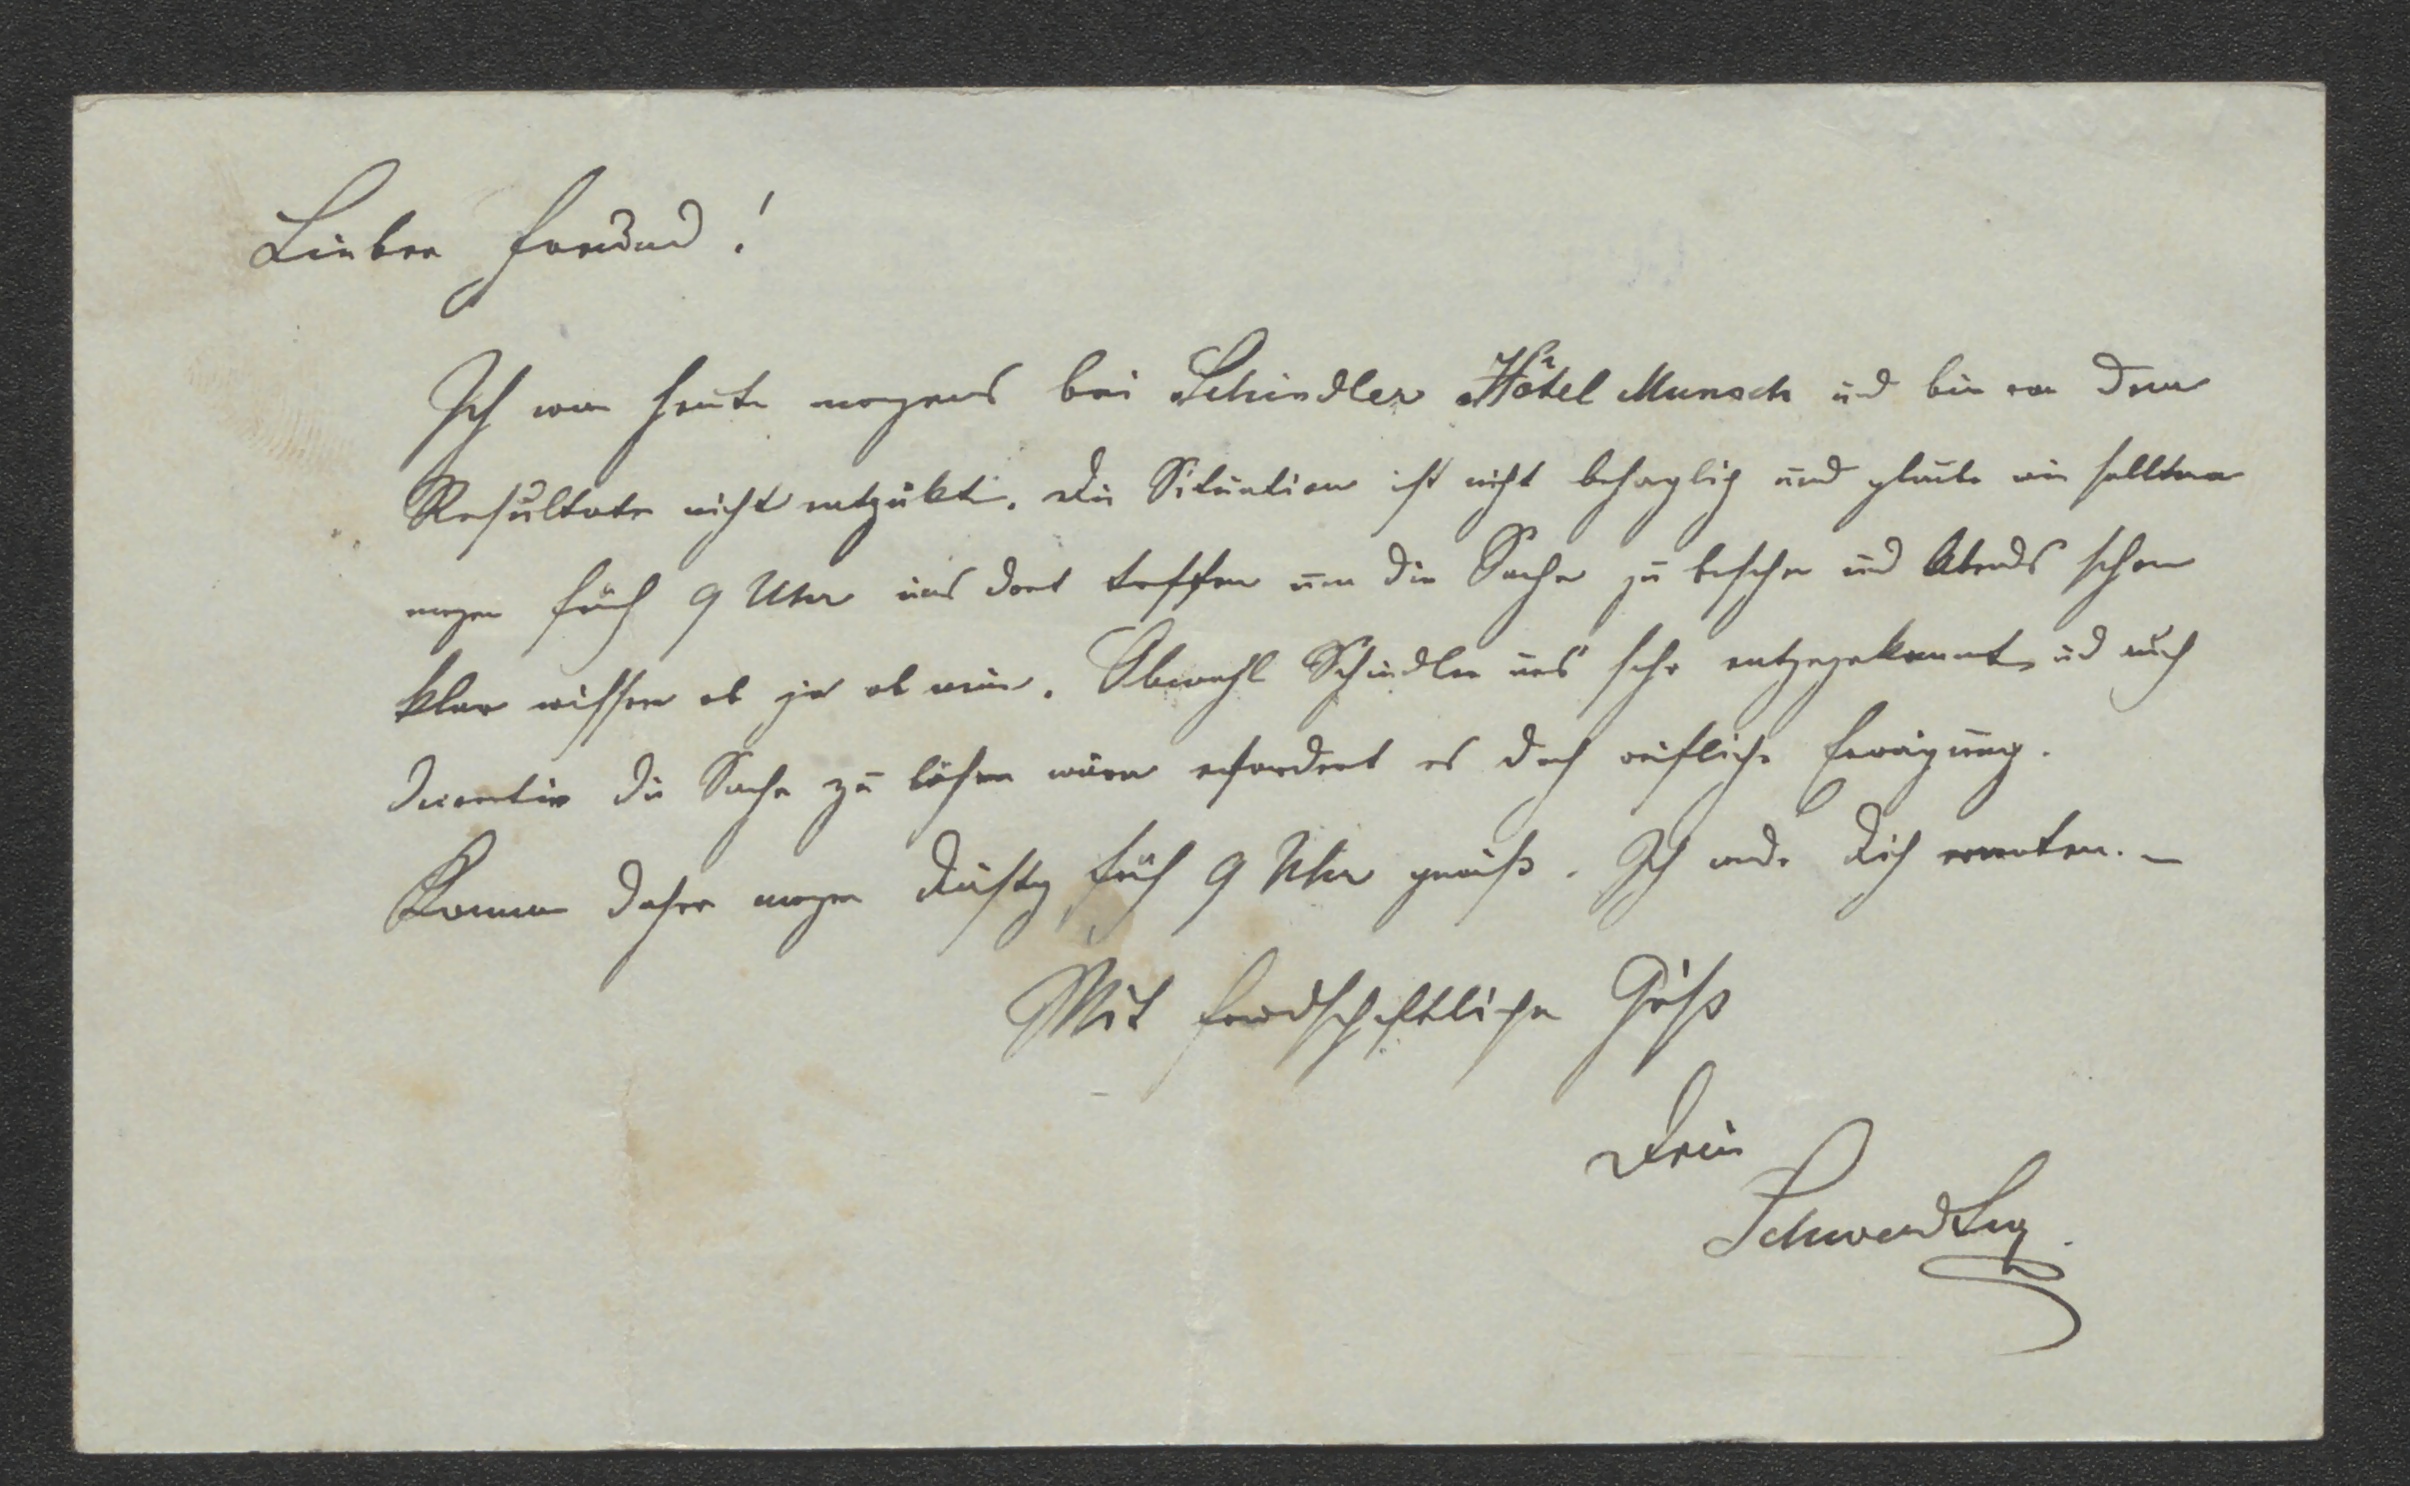 Lieber Freund!
Ich war heute morgens bei Schindler Hôtel Munsch und bin von dem
Resultate nicht entzükt. Die Situation ist nicht behaglich und glaube wir sollten
morgen früh 9 Uhr uns dort treffen um die Sache zu besehen und Abends schon
klar wissen ob ja ob nein. Obwohl Schindler uns sehr entgegekommt, und auch
die Sache zu lösen wäre erfordert es doch reifliche Erwägung.
Komme daher morgen Dinstg früh 9 Uhr gewiß. Ich werde Dich erwarten. –
Mit freundschaftlichen Gruß
Dein